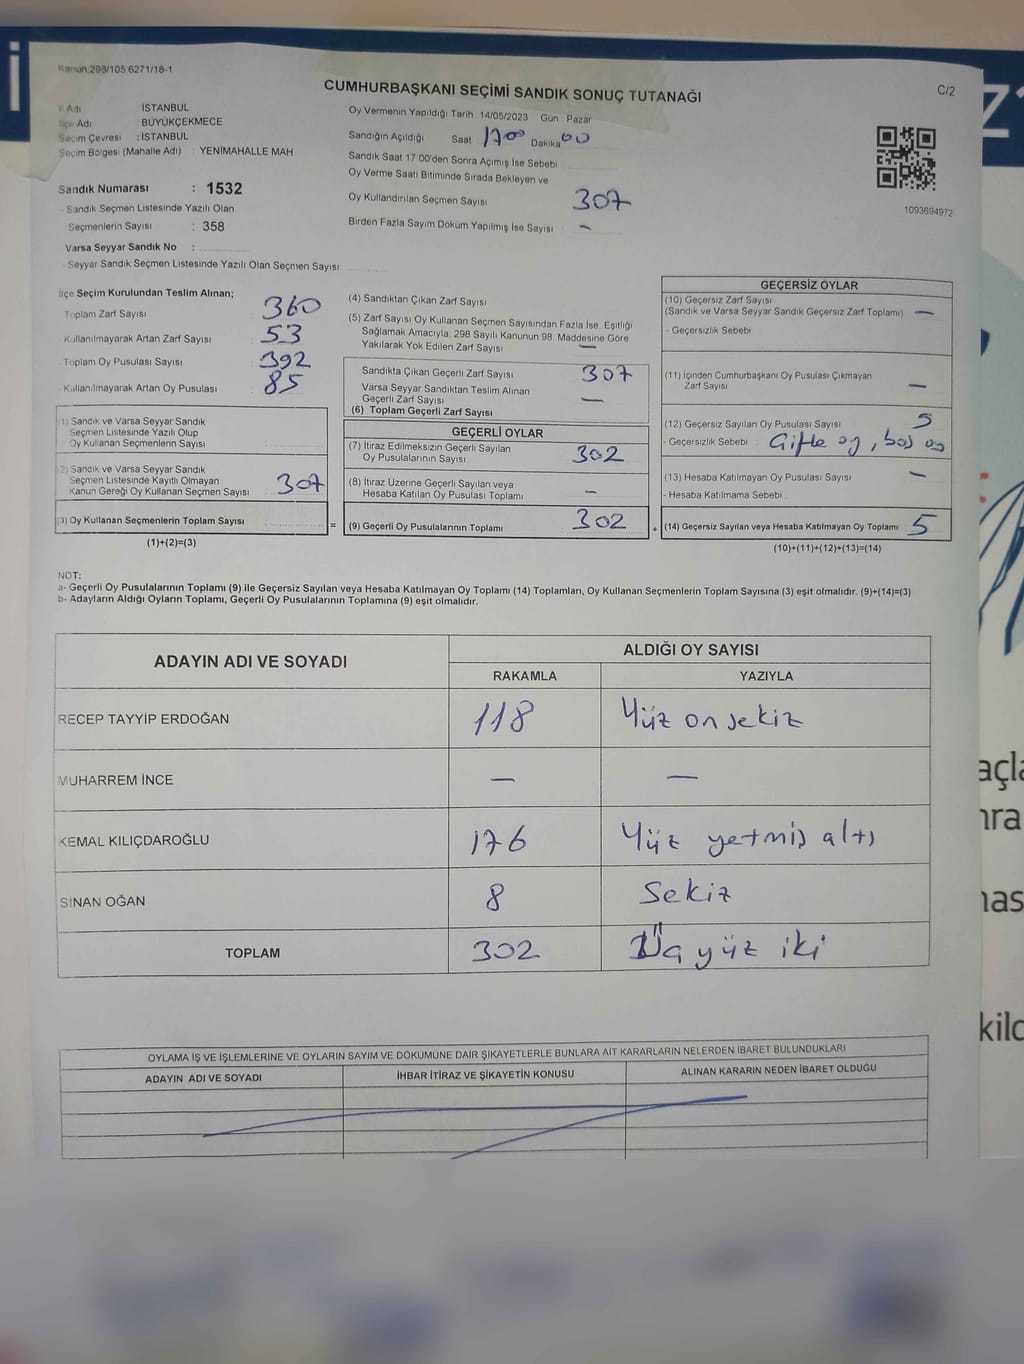 Kanun:298/105.6271/18-1
CUMHURBAŞKANI SEÇİMİ SANDIK SONUÇ TUTANAĞI
C/2
İl Adı : İSTANBUL
İlçe Adı : BÜYÜKÇEKMECE
Seçim Çevresi : İSTANBUL
Seçim Bölgesi (Mahalle Adı) : YENİMAHALLE MAH
Sandık Numarası : 1532
- Sandık Seçmen Listesinde Yazılı Olan
Seçmenlerin Sayısı : 358
Varsa Seyyar Sandık No :
- Seyyar Sandık Seçmen Listesinde Yazılı Olan Seçmen Sayısı
Oy Vermenin Yapıldığı Tarih 14/05/2023 Gün Pazar
Sandığın Açıldığı Saat 17 00 Dakika 00
Sandık Saat 17:00'den Sonra Açımış İse Sebebi
Oy Verme Saati Bitiminde Sırada Bekleyen ve
Oy Kullandırılan Seçmen Sayısı 307
Birden Fazla Sayım Döküm Yapılmış İse Sayısı –
1093694972
İlçe Seçim Kurulundan Teslim Alınan;
Toplam Zarf Sayısı : 360
Kullanılmayarak Artan Zarf Sayısı : 53
Toplam Oy Pusulası Sayısı : 392
Kullanılmayarak Artan Oy Pusulası : 85
1) Sandık ve Varsa Seyyar Sandık
Seçmen Listesinde Yazılı Olup
Oy Kullanan Seçmenlerin Sayısı
(2) Sandık ve Varsa Seyyar Sandık
Seçmen Listesinde Kayıtlı Olmayan
Kanun Gereği Oy Kullanan Seçmen Sayısı : 307
(3) Oy Kullanan Seçmenlerin Toplam Sayısı =
(1)+(2)=(3)
(4) Sandıktan Çıkan Zarf Sayısı
(5) Zarf Sayısı Oy Kullanan Seçmen Sayısından Fazla İse, Eşitliği
Sağlamak Amacıyla, 298 Sayılı Kanunun 98. Maddesine Göre
Yakılarak Yok Edilen Zarf Sayısı –
Sandıkta Çıkan Geçerli Zarf Sayısı 307
Varsa Seyyar Sandıktan Teslim Alınan
Geçerli Zarf Sayısı –
(6) Toplam Geçerli Zarf Sayısı
GEÇERLİ OYLAR
(7) İtiraz Edilmeksizin Geçerli Sayılan
Oy Pusulalarının Sayısı 302
(8) İtiraz Üzerine Geçerli Sayılan veya
Hesaba Katılan Oy Pusulası Toplamı –
(9) Geçerli Oy Pusulalarının Toplamı 302 +
GEÇERSİZ OYLAR
(10) Geçersiz Zarf Sayısı
(Sandık ve Varsa Seyyar Sandık Geçersiz Zarf Toplamı) –
- Geçersizlik Sebebi
(11) İçinden Cumhurbaşkanı Oy Pusulası Çıkmayan
Zarf Sayısı –
(12) Geçersiz Sayılan Oy Pusulası Sayısı 5
- Geçersizlik Sebebi : Çifte oy, boş oy
(13) Hesaba Katılmayan Oy Pusulası Sayısı –
- Hesaba Katılmama Sebebi
(14) Geçersiz Sayılan veya Hesaba Katılmayan Oy Toplamı 5
(10)+(11)+(12)+(13)=(14)
NOT:
a- Geçerli Oy Pusulalarının Toplamı (9) ile Geçersiz Sayılan veya Hesaba Katılmayan Oy Toplamı (14) Toplamları, Oy Kullanan Seçmenlerin Toplam Sayısına (3) eşit olmalıdır. (9)+(14)=(3)
b- Adayların Aldığı Oyların Toplamı, Geçerli Oy Pusulalarının Toplamına (9) eşit olmalıdır.
ADAYIN ADI VE SOYADI
ALDIĞI OY SAYISI
RAKAMLA YAZIYLA
RECEP TAYYİP ERDOĞAN 118 Yüz on sekiz
MUHARREM İNCE – –
KEMAL KILIÇDAROĞLU 176 Yüz yetmiş altı
SİNAN OĞAN 8 Sekiz
TOPLAM 302 Üç yüz iki
OYLAMA İŞ VE İŞLEMLERİNE VE OYLARIN SAYIM VE DÖKÜMÜNE DAİR ŞİKAYETLERLE BUNLARA AİT KARARLARIN NELERDEN İBARET BULUNDUKLARI
ADAYIN ADI VE SOYADI İHBAR İTİRAZ VE ŞİKAYETİN KONUSU ALINAN KARARIN NEDEN İBARET OLDUĞU